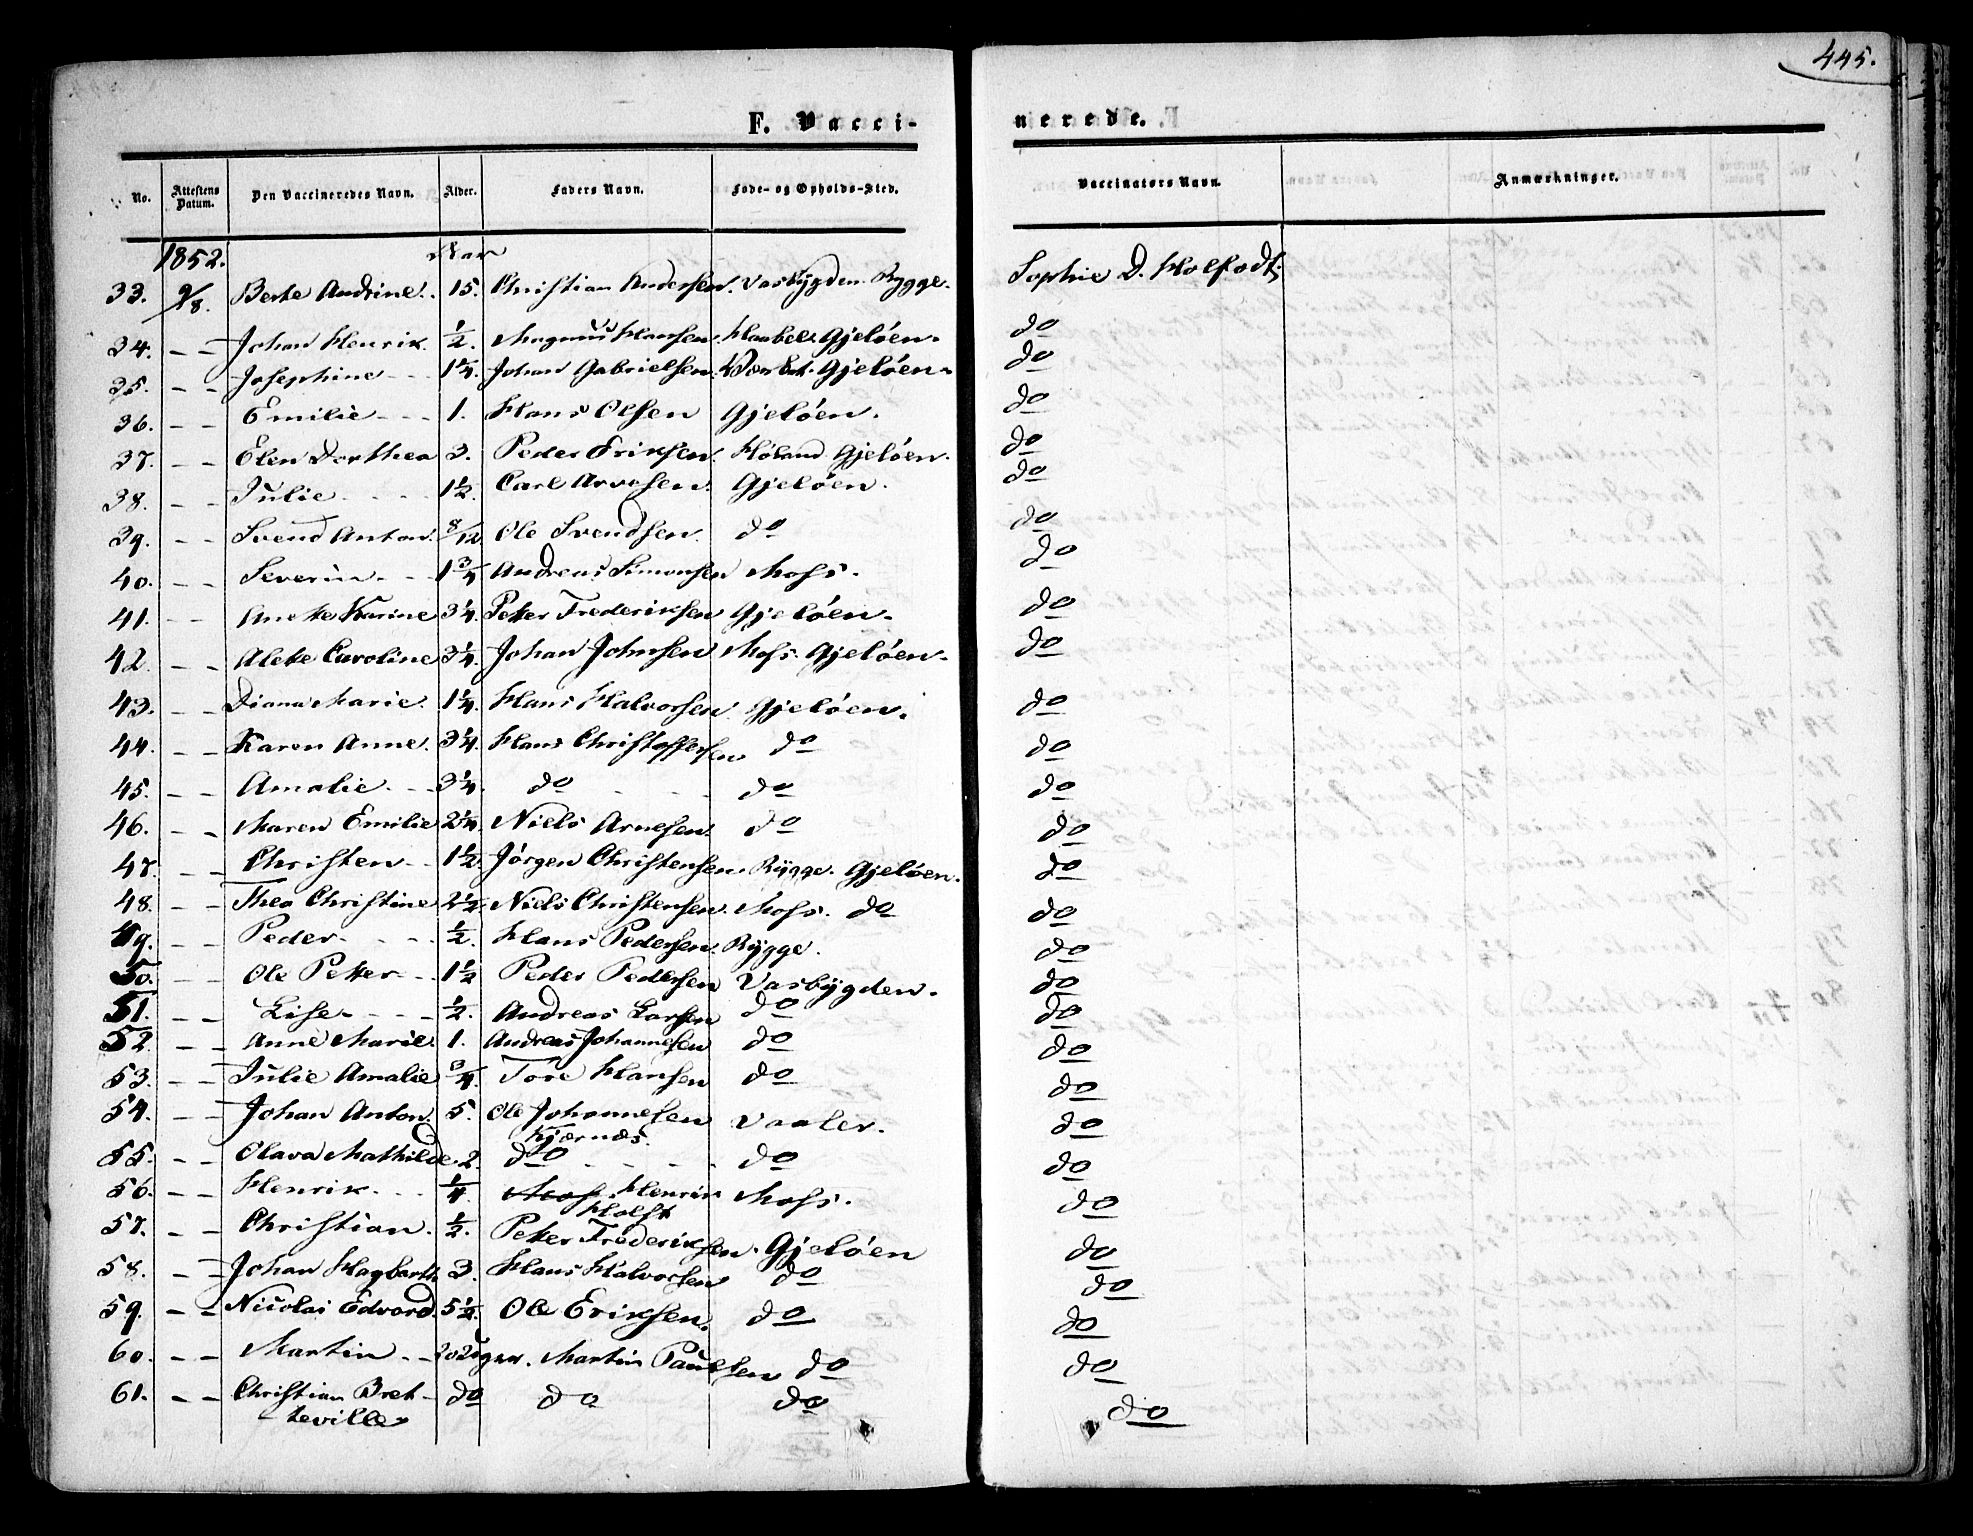 445.
F. Vacci-
nerede.
No. Attestens Datum. Den Vaccineredes Navn. Alder. Faders Navn. Føde- og Opholds-Sted. Vaccinators Navn. Anmærkninger.
1852. Aar
33. 9/8. Berte Andrine. 15. Christian Andersen. Vasbygden Rygge. Sophie D. Holfodt.
34. - - Johan Henrik. 1/2. Magnus Hansen. Gjelöen. do
35. - - Josephine - - 1 1/4. Johan Gabrielsen. Gjelöen. do
36. - - Emilie - - - 1. Hans Olsen Gjelöen. do
37. - - Elen Dorthea 3. Peder Eriksen. Höland Gjelöen. do
38. - - Julie - - - 1 1/2. Carl Arvesen. Gjelöen. do
39. - - Svend Anton. 8/12 Ole Svendsen. do do
40. - - Severin - - 1 3/4 Andreas Simonsen Moss. do
41. - - Anette Karine 3 1/4. Petter Frederiksen Gjelöen. do
42. - - Alette Caroline 3 1/4. Johan Johnsen Moss. Gjelöen. do
43. - - Diana Marie. 1 1/4. Hans Halvorsen Gjelöen. do
44. - - Karen Anne. 3 1/4. Hans Christoffersen do do
45. - - Amalie - - 3 1/4. do - - - do do
46. - - Maren Emilie 2 1/4. Niels Arnesen. do do
47. - - Christen - - 1 1/2. Jörgen Christensen. Rygge. Gjelöen. do
48. - - Thea Christine 2 1/2. Niels Christensen. Moss. do do
49. - - Peder - - - 1/2. Hans Pedersen. Rygge. do
50. - - Ole Petter - - 1 1/2 Peder Pedersen Vasbygden. do
51. - - Lise - - - 1/2. Andreas Larsen do do
52. - - Anne Marie. 1. Andreas Johannesen do do
53. - - Julie Amalie 3/4. Tore Hansen do do
54. - - Johan Anton. 5. Ole Johannesen Vaaler. do
Kjærnæs.
55. - - Olava Mathilde. 2. do - - - do do
56. - - Henrik - - - 1/4. Moss Henrik Moss. do
Holst
57. - - Christian. 1/2. Petter Frederiksen. Gjelöen do
58. - - Johan Hagbarth 3. Hans Halvorsen do do
59. - - Nicolai Edvard. 5 1/2. Ole Eriksen. do do
60. - - Martin - - Martin Paulsen do do
61. - - Christian Bret- do do do do
teville